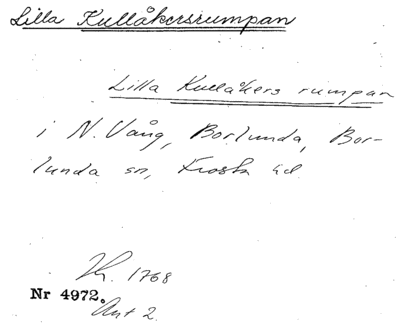 Lilla Kullåkersrumpan
Lilla Kullåkers rumpan
i N. Vång, Borlunda, Bor-
lunda sn, Frosta hd
1768
Nr 4972.
Akt 2